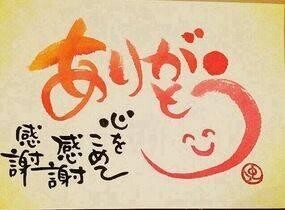 ありがとう
心をこめて
感謝
感謝